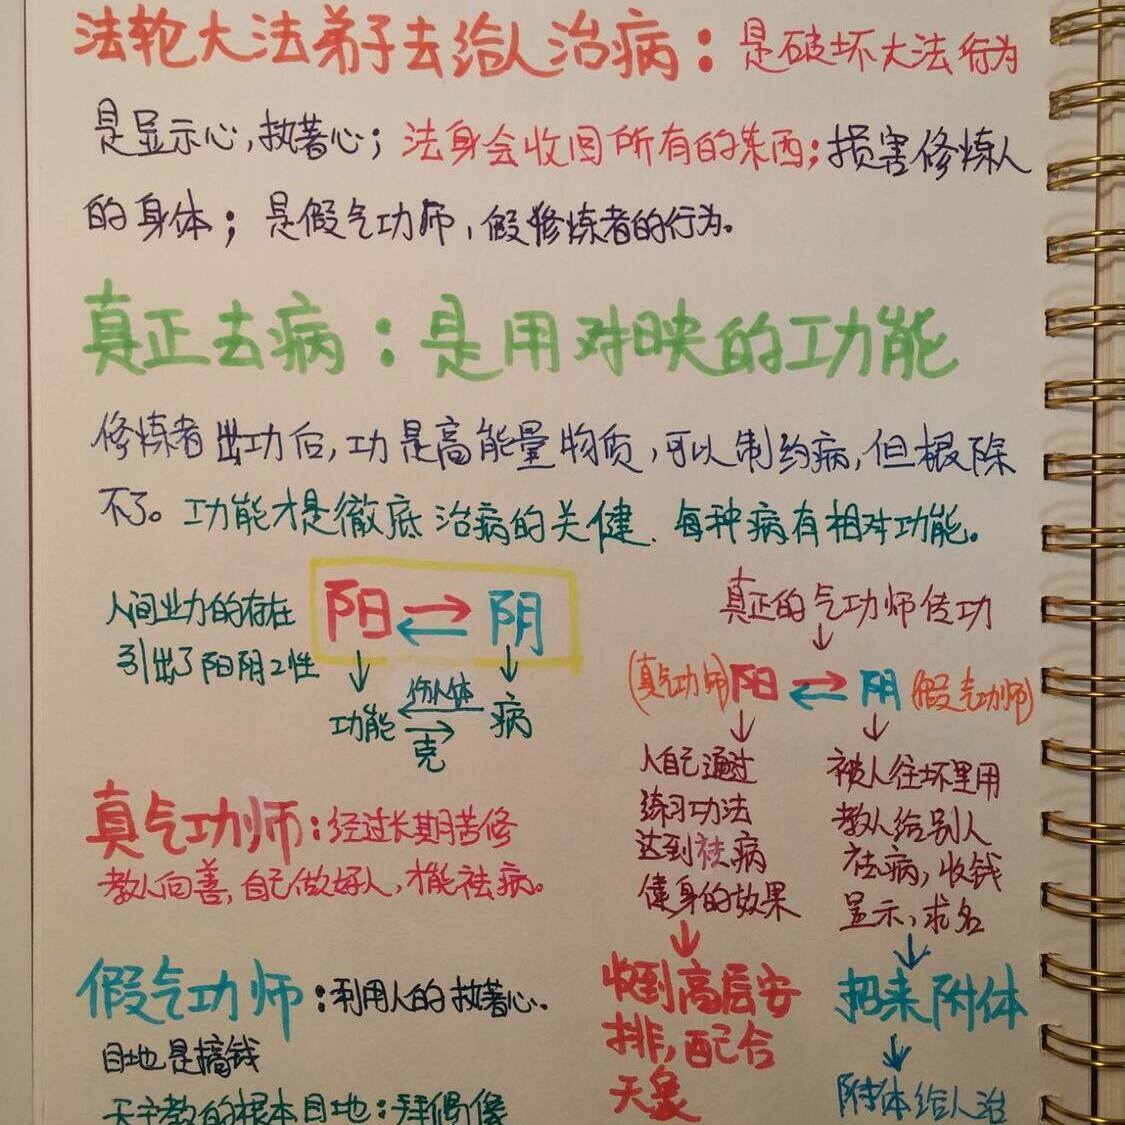 法轮大法弟子去给人治病：是破坏大法行为
是显示心，执著心；法身会收回所有的东西；损害修炼人
的身体；是假气功师，假修炼者的行为。
真正去病：是用对映的功能
修炼者出功后，功是高能量物质，可以制约病，但根除
不了。功能才是徹底治病的关健．每种病有相对功能。
人间业力的存在
引出了阳阴2性
阳 阴
功能 病
克
真气功师：经过长期苦修
教人向善，自己做好人，才能祛病。
假气功师：利用人的执著心．
目地是搞钱
天主教的根本目地：拜偶像
真正的气功师传功
(真气功师)阳 阴(假气功师)
人自己通过
练习功法
达到祛病
健身的效果
收到高层安
排，配合
天象
被人往坏里用
教人给别人
祛病，收钱
显示，求名
招来附体
附体给人治